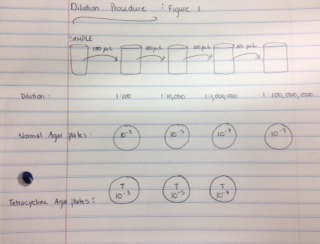 Dilution Procedure : Figure 1
SAMPLE
100 µL 100 µL 100 µL 100 µL
Dilution : 1:100 1:10,000 1:1,000,000 1:100,000,000
Normal Agar plates : 10⁻³ 10⁻⁵
T T T
10⁻³ 10⁻⁵
Tetracycline Agar plates :